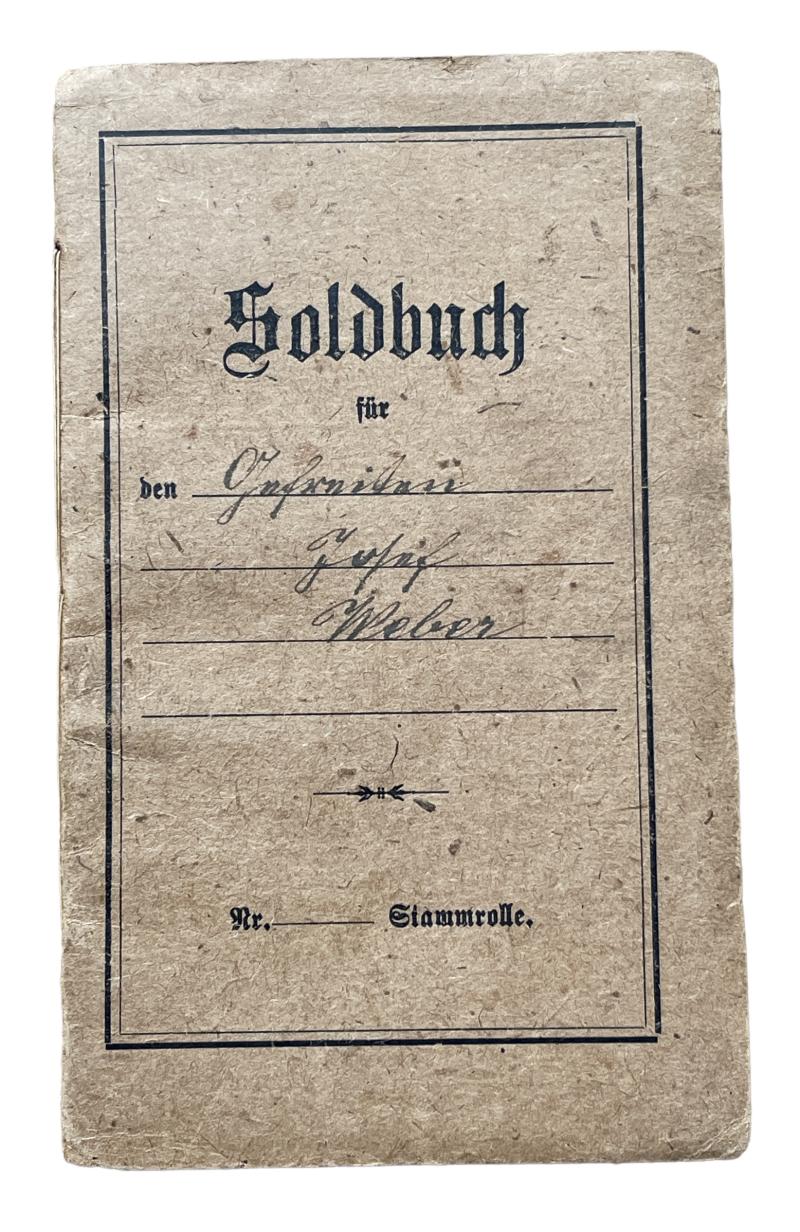 Soldbuch
für
den Gefreiten
Josef
Weber
Nr. Stammrolle.